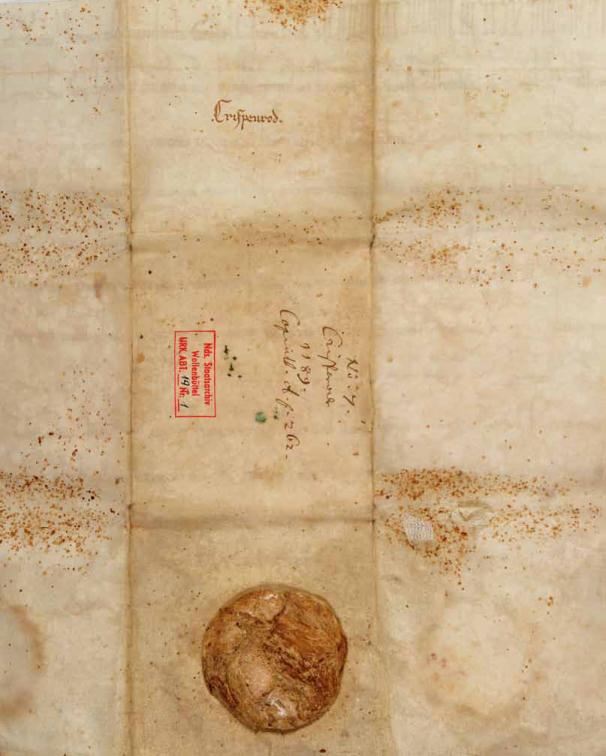 Crispenrod.
No: 7.
1189
Copialb. A. f. 262.
Nds. Staatsarchiv
Wolfenbüttel
URK. ABT. 19 Nr. 1